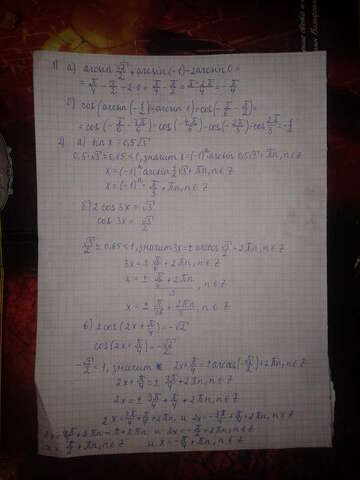 1) а) arcsin √2/2 + arcsin(-1) - 2 arcsin 0 =
= π/4 - π/2 - 2·0 = π/4 - π/2 = π-2π/4 = - π/4
б) cos(arcsin(-1/2) - arcsin 1) = cos(- π/6 - π/2) =
= cos(- π/6 - 3π/6) = cos(- 4π/6) = cos(- 2π/3) = cos 2π/3 = - 1/2
2) а) sin x = 0,5√3
0,5·√3 ≈ 0,85 < 1, значит x = (-1)ⁿ arcsin 0,5√3 + πn, n∈Z
x = (-1)ⁿ arcsin(1/2)√3 + πn, n∈Z
x = (-1)ⁿ · π/3 + πn, n∈Z
б) 2 cos 3x = √3
cos 3x = √3/2
√3/2 ≈ 0,85 < 1, значит 3x = ± arccos √3/2 + 2πn, n∈Z
3x = ± π/6 + 2πn, n∈Z
x = ± π/6 + 2πn / 3, n∈Z
x = ± π/18 + 2πn/3, n∈Z
в) 2 cos(2x + π/4) = -√2
cos(2x + π/4) = - √2/2
- √2/2 < 1, значит 2x + π/4 = ± arccos(- √2/2) + 2πn, n∈Z
2x + π/4 = ± 3π/4 + 2πn, n∈Z
2x = ± 3π/4 - π/4 + 2πn, n∈Z
2x = 3π/4 - π/4 + 2πn, и 2x = - 3π/4 - π/4 + 2πn, n∈Z